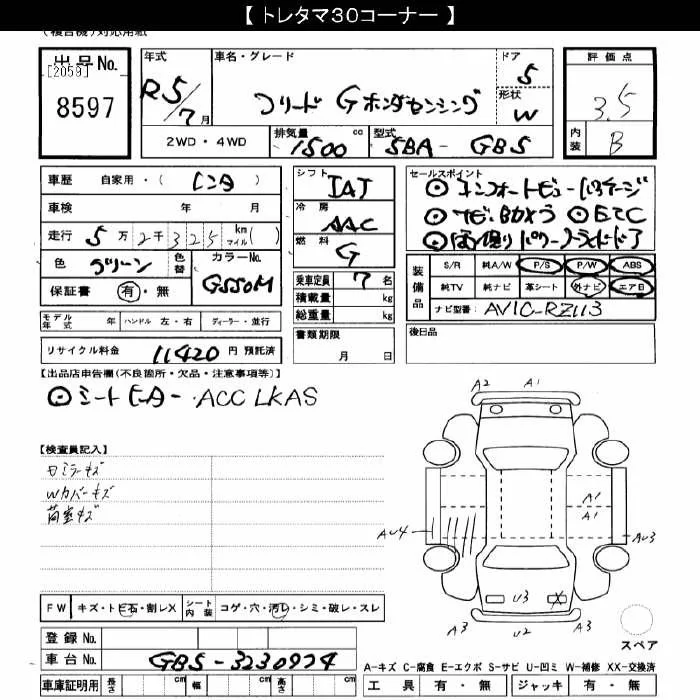 【 トレタマ30コーナー 】
(複合機)対応用紙
出品No. [2059] 8597
年式 R5/7月
車名・グレード フリード G ホンダセンシング
ドア 5
形状 W
2WD・4WD
排気量 1500 cc
型式 5BA-GB5
評価点 3.5
内装 B
車歴 自家用・( レンタ )
車検 年 月
走行 5万2千325 km マイル( )
色 グリーン 色替 カラーNo. G550M
保証書 有・無
シフト IAT
冷房 AAC
燃料 G
乗車定員 7名
積載量 kg
総重量 kg
書類期限 月 日
セールスポイント
⊙コンフォートビューパッケージ
⊙ナビBカメラ ⊙ETC
⊙両側パワースライドドア
装備品 S/R 純A/W P/S P/W ABS
純TV 純ナビ 革シート 外ナビ エアB
ナビ型番: AVIC-RZ113
モデル年式 年 ハンドル 左・右 ディーラー・並行
リサイクル料金 11420 円 預託済
後日品
【出品店申告欄(不良箇所・欠品・注意事項等)】
⊙シートヒーター ACC LKAS
【検査員記入】
ミラーキズ
Wカバーキズ
荷室キズ
A2 A1
A1
A1
AU4 AU3
U3 X
A3 U2 A3
スペア
FW キズ・トビ石・割レX シート内装 コゲ・穴・汚レ・シミ・破レ・スレ
登録No.
車台No. GB5-3230974
車庫証明用 長さ cm 幅 cm 高さ cm
A-キズ C-腐食 E-エクボ S-サビ U-凹ミ W-補修 XX-交換済
工具 有・無 ジャッキ 有・無